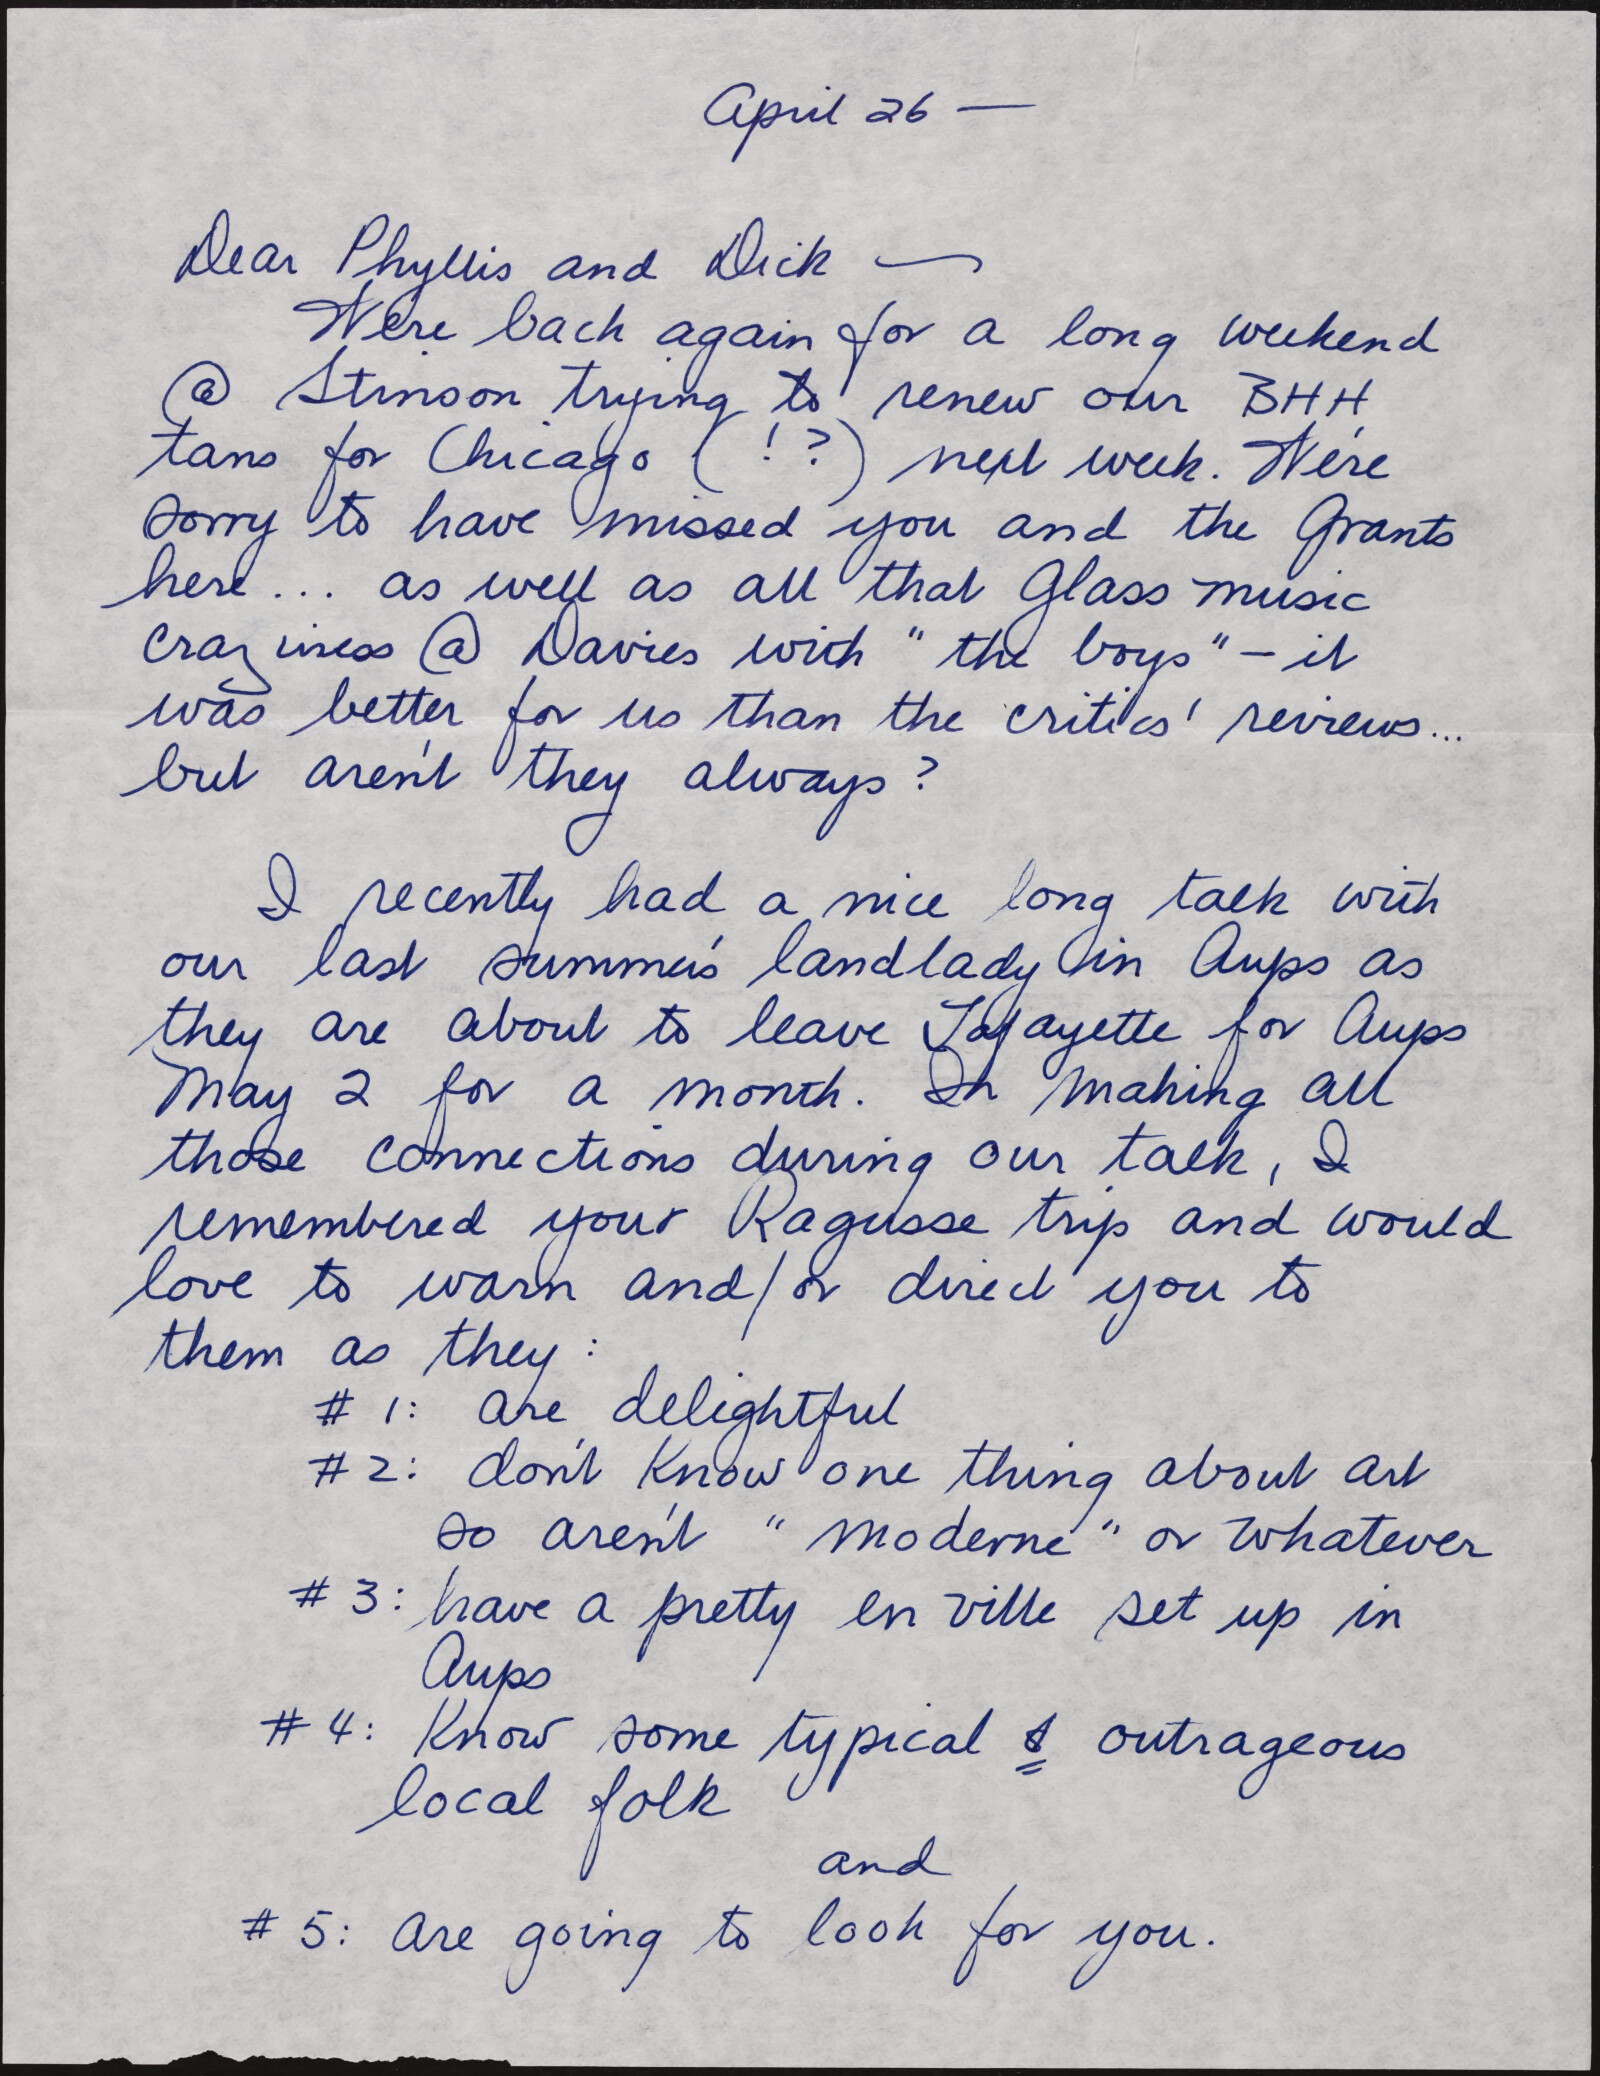 April 26 —
Dear Phyllis and Dick —
We're back again for a long weekend
@ Stinson trying to renew our BHH
tans for Chicago (!?) next week. We're
sorry to have missed you and the Grants
here... as well as all that Glass music
craziness @ Davies with "the boys" – it
was better for us than the critics' reviews...
but aren't they always?
I recently had a nice long talk with
our last summer's landlady in Aups as
they are about to leave Lafayette for Aups
May 2 for a month. In making all
those connections during our talk, I
remembered your Ragusse trip and would
love to warn and/or direct you to
them as they:
# 1: are delightful
# 2: don't know one thing about art
so aren't "moderne" or whatever
# 3: have a pretty en ville set up in
Aups
# 4: Know some typical & outrageous
local folk
and
# 5: are going to look for you.